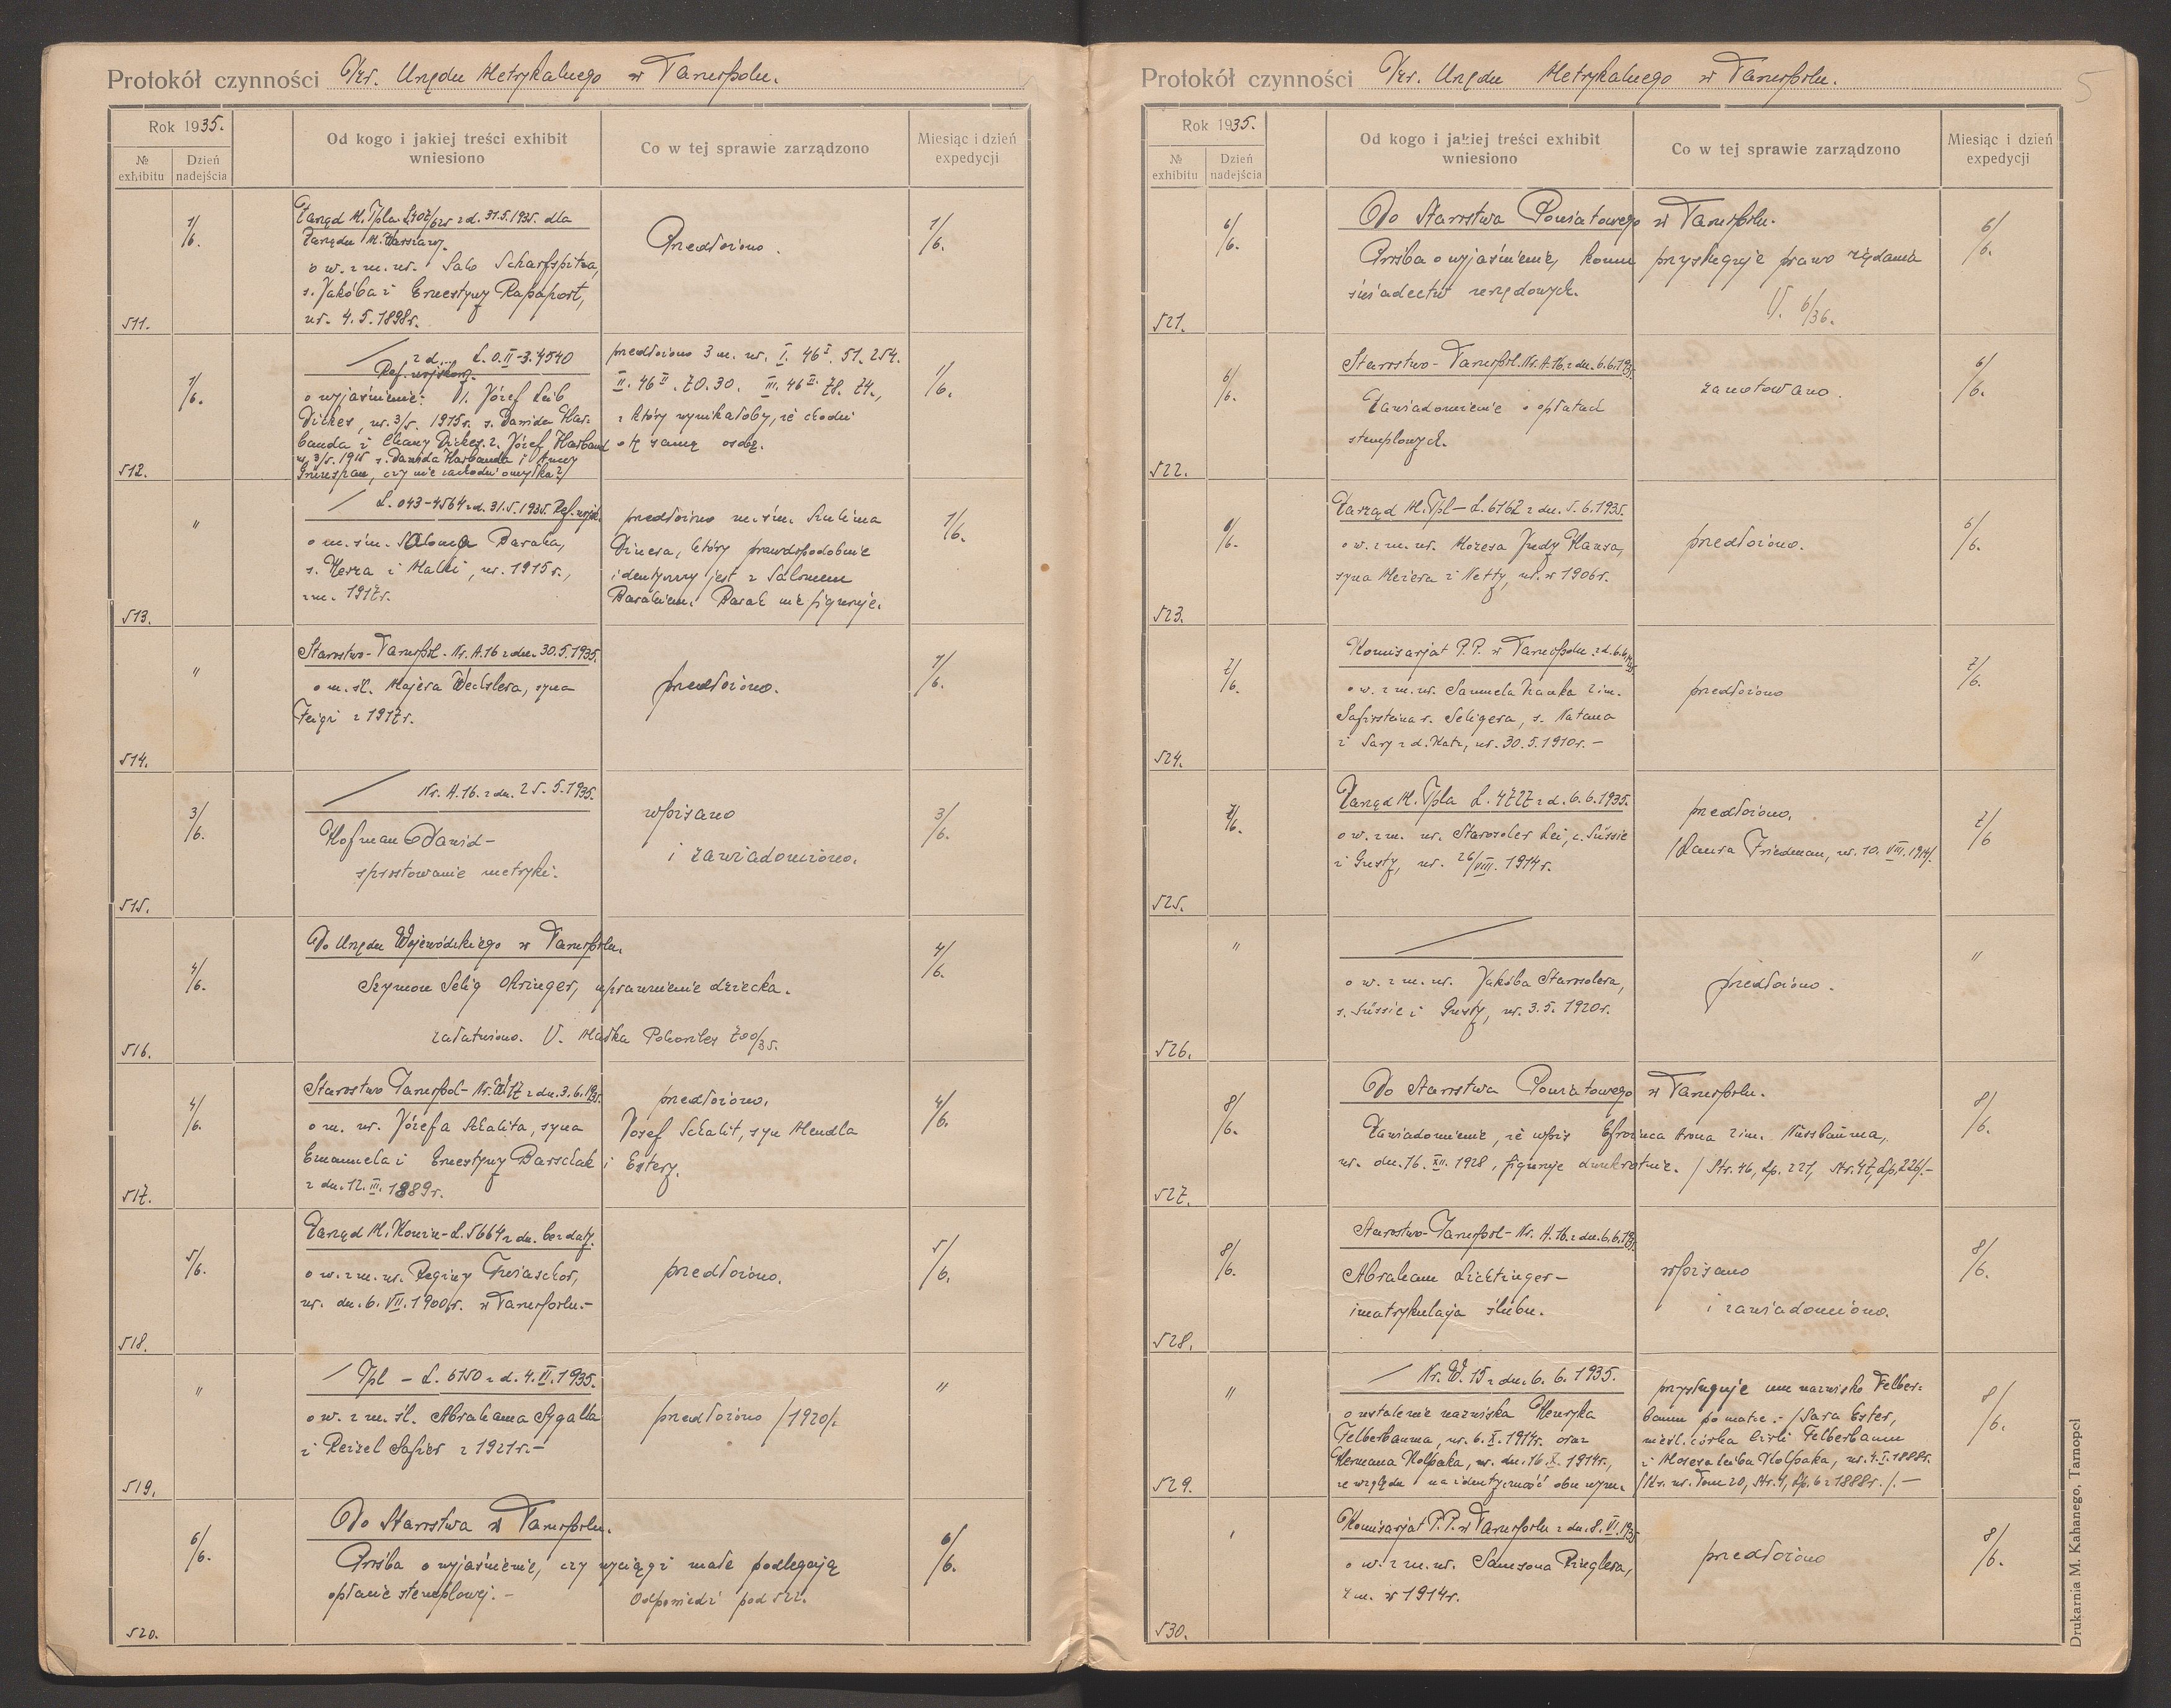 Protokół czynności Izr. Urzędu Metrykalnego w Tarnopolu.
Rok 1935.
№ exhibitu
Dzień nadejścia
Od kogo i jakiej treści exhibit wniesiono
Co w tej sprawie zarządzono
Miesiąc i dzień expedycji
511.
1/6.
Zarząd M. Tpla z d. 31.5.1935. dla
Zarządu M. Warszawy.
o w. z m. ur. Salo Scharfspitza,
s. Jakóba i Ernestyny Rapaport,
ur. 4.5.1898r.
Przedłożono.
1/6.
512.
1/6.
z d. L. O.II-3.4540
Ref. wojskowy.
o wyjaśnienie: 1. Józef Leib
Dickes, ur. 3/5. 1915r. s. Dawida Har-
banda i Chany Dickes. 2. Józef Harband
ur. 3/5. 1915 s. Dawida Harbanda i Anny
Grünspan, czy nie zachodzi omyłka?/
przedłożono 3 m. ur. I. 46 I. 51. 254.
II. 46 II. 70. 30. III. 46 II. 78. 74.,
z który wynikałoby, że chodzi
o tę samą osobę.
1/6.
513.
"
L. 043-4564 z d. 31.5.1935. Ref. wojsk.
o m. śm. Saloma Baraka,
s. Herza i Malki, ur. 1915r.,
zm. 1917r.
przedłożono m. śm. Sulima
Dinera, który prawdopodobnie
identyczny jest z Salomem
Barakiem. Barak nie figuruje.
1/6.
514.
"
Starostwo-Tarnopol - Nr. A.16 z dn. 30.5.1935.
o m. śl. Majera Wechslera, syna
Feigi z 1917r.
przedłożono.
1/6.
515.
3/6.
Nr. A.16. z dn. 25.5.1935.
Hofman Dawid-
sprostowanie metryki.
wpisano
i zawiadomiono.
3/6.
516.
4/6.
Do Urzędu Wojewódzkiego w Tarnopolu.
Szymon Selig Okringer, uprawnienie dziecka.
załatwiono. V. Matka Pohoriles 700/35.
4/6.
517.
4/6.
Starostwo Tarnopol- Nr. W.17 z dn. 3.6.1935.
o m. ur. Józefa Schalita, syna
Emanuela i Ernestyny Barschak
z dn. 12. III. 1889r.
przedłożono.
Josef Schalit, syn Mendla
i Estery.
4/6.
518.
5/6.
Zarząd M. Konin- L. 5664 z dn. bez daty.
o w. z m. ur. Reginy Gwiaschor,
ur. dn. 6. VII. 1900r. w Tarnopolu.-
przedłożono.
5/6.
519.
"
Tpl - L. 6150 z d. 4.II.1935.
o w. z m. śl. Abrahama Sygalla
i Reizel Safier z 1921r.-
przedłożono /1920/.
"
520.
6/6.
Do Starostwa w Tarnopolu.
Prośba o wyjaśnienie, czy wyciągi małe podlegają
opłacie stemplowej.-
Odpowiedź pod 522.
6/6.
Protokół czynności Izr. Urzędu Metrykalnego w Tarnopolu.
5
Rok 1935.
№ exhibitu
Dzień nadejścia
Od kogo i jakiej treści exhibit wniesiono
Co w tej sprawie zarządzono
Miesiąc i dzień expedycji
521.
6/6.
Do Starostwa Powiatowego w Tarnopolu.
Prośba o wyjaśnienie, komu przysługuje prawo żądania
świadectw urzędowych.
V. 6/36.
6/6.
522.
6/6.
Starostwo-Tarnopol. Nr. A.16. z dn. 6.6.1935.
Zawiadomienie o opłatach
stemplowych.
zanotowano.
6/6.
523.
6/6.
Zarząd M. Tpl- L. 6162 z dn. 5.6.1935.
o w. z m. ur. Mozesa Judy Hausa,
syna Meiera i Netty, ur. w 1906r.
przedłożono.
6/6.
524.
7/6.
Komisarjat P.P. w Tarnopolu z d. 6.6.1935.
o w. z m. ur. Samuela Hanka 2 im.
Safirsteina r. Seligera, s. Natana
i Sary z d. Katz, ur. 30.5.1910r.-
przedłożono
7/6.
525.
7/6.
Zarząd M. Tpla L. 4727 z d. 6.6.1935.
o w. z m. ur. Starosoler Lei, c. Süssie
i Gusty, ur. 26/VIII. 1914r.
przedłożono,
/Laura Friedman, ur. 10. VIII. 1914/.
7/6
526.
"
o w. z m. ur. Jakóba Starosolera,
s. Süssie i Gusty, ur. 3.5. 1920r.
przedłożono.
"
527.
8/6.
Do Starostwa Powiatowego w Tarnopolu.
Zawiadomienie, że wpis Efroima Arona 2 im. Nussbauma,
ur. dn. 16. XII. 1928, figuruje dwukrotnie. / Str. 46, Lp. 221, Str. 47, Lp. 226/.-
8/6.
528.
8/6.
Starostwo-Tarnopol- Nr. A.16. z dn. 6.6.1935.
Abraham Lichtinger-
imatrykulacja ślubu.
wpisano
i zawiadomiono.
8/6.
529.
"
Nr. W. 15 z dn. 6. 6. 1935.
o ustalenie nazwiska Henryka
Felberbauma, ur. 6. X. 1914r. oraz
Hermana Kolpaka, ur. dn. 16. X. 1914r.,
ze względu na identyczność obu wym.
przysługuje mu nazwisko Felber-
baum po matce.- /Sara Ester,
nieśl. córka Cirli Felberbaum
i Mosesa Leiba Kolpaka, ur. 4. I. 1888r.
/Ks. ur. Tom 20, Str. 4, Lp. 6 z 1888r./.-
8/6.
530.
Komisarjat P.P. w Tarnopolu z dn. 8. VI. 1935
o w. z m. ur. Samsona Zieglera,
z m. w 1914r.
przedłożono
8/6.
Drukarnia M. Kahanego, Tarnopol